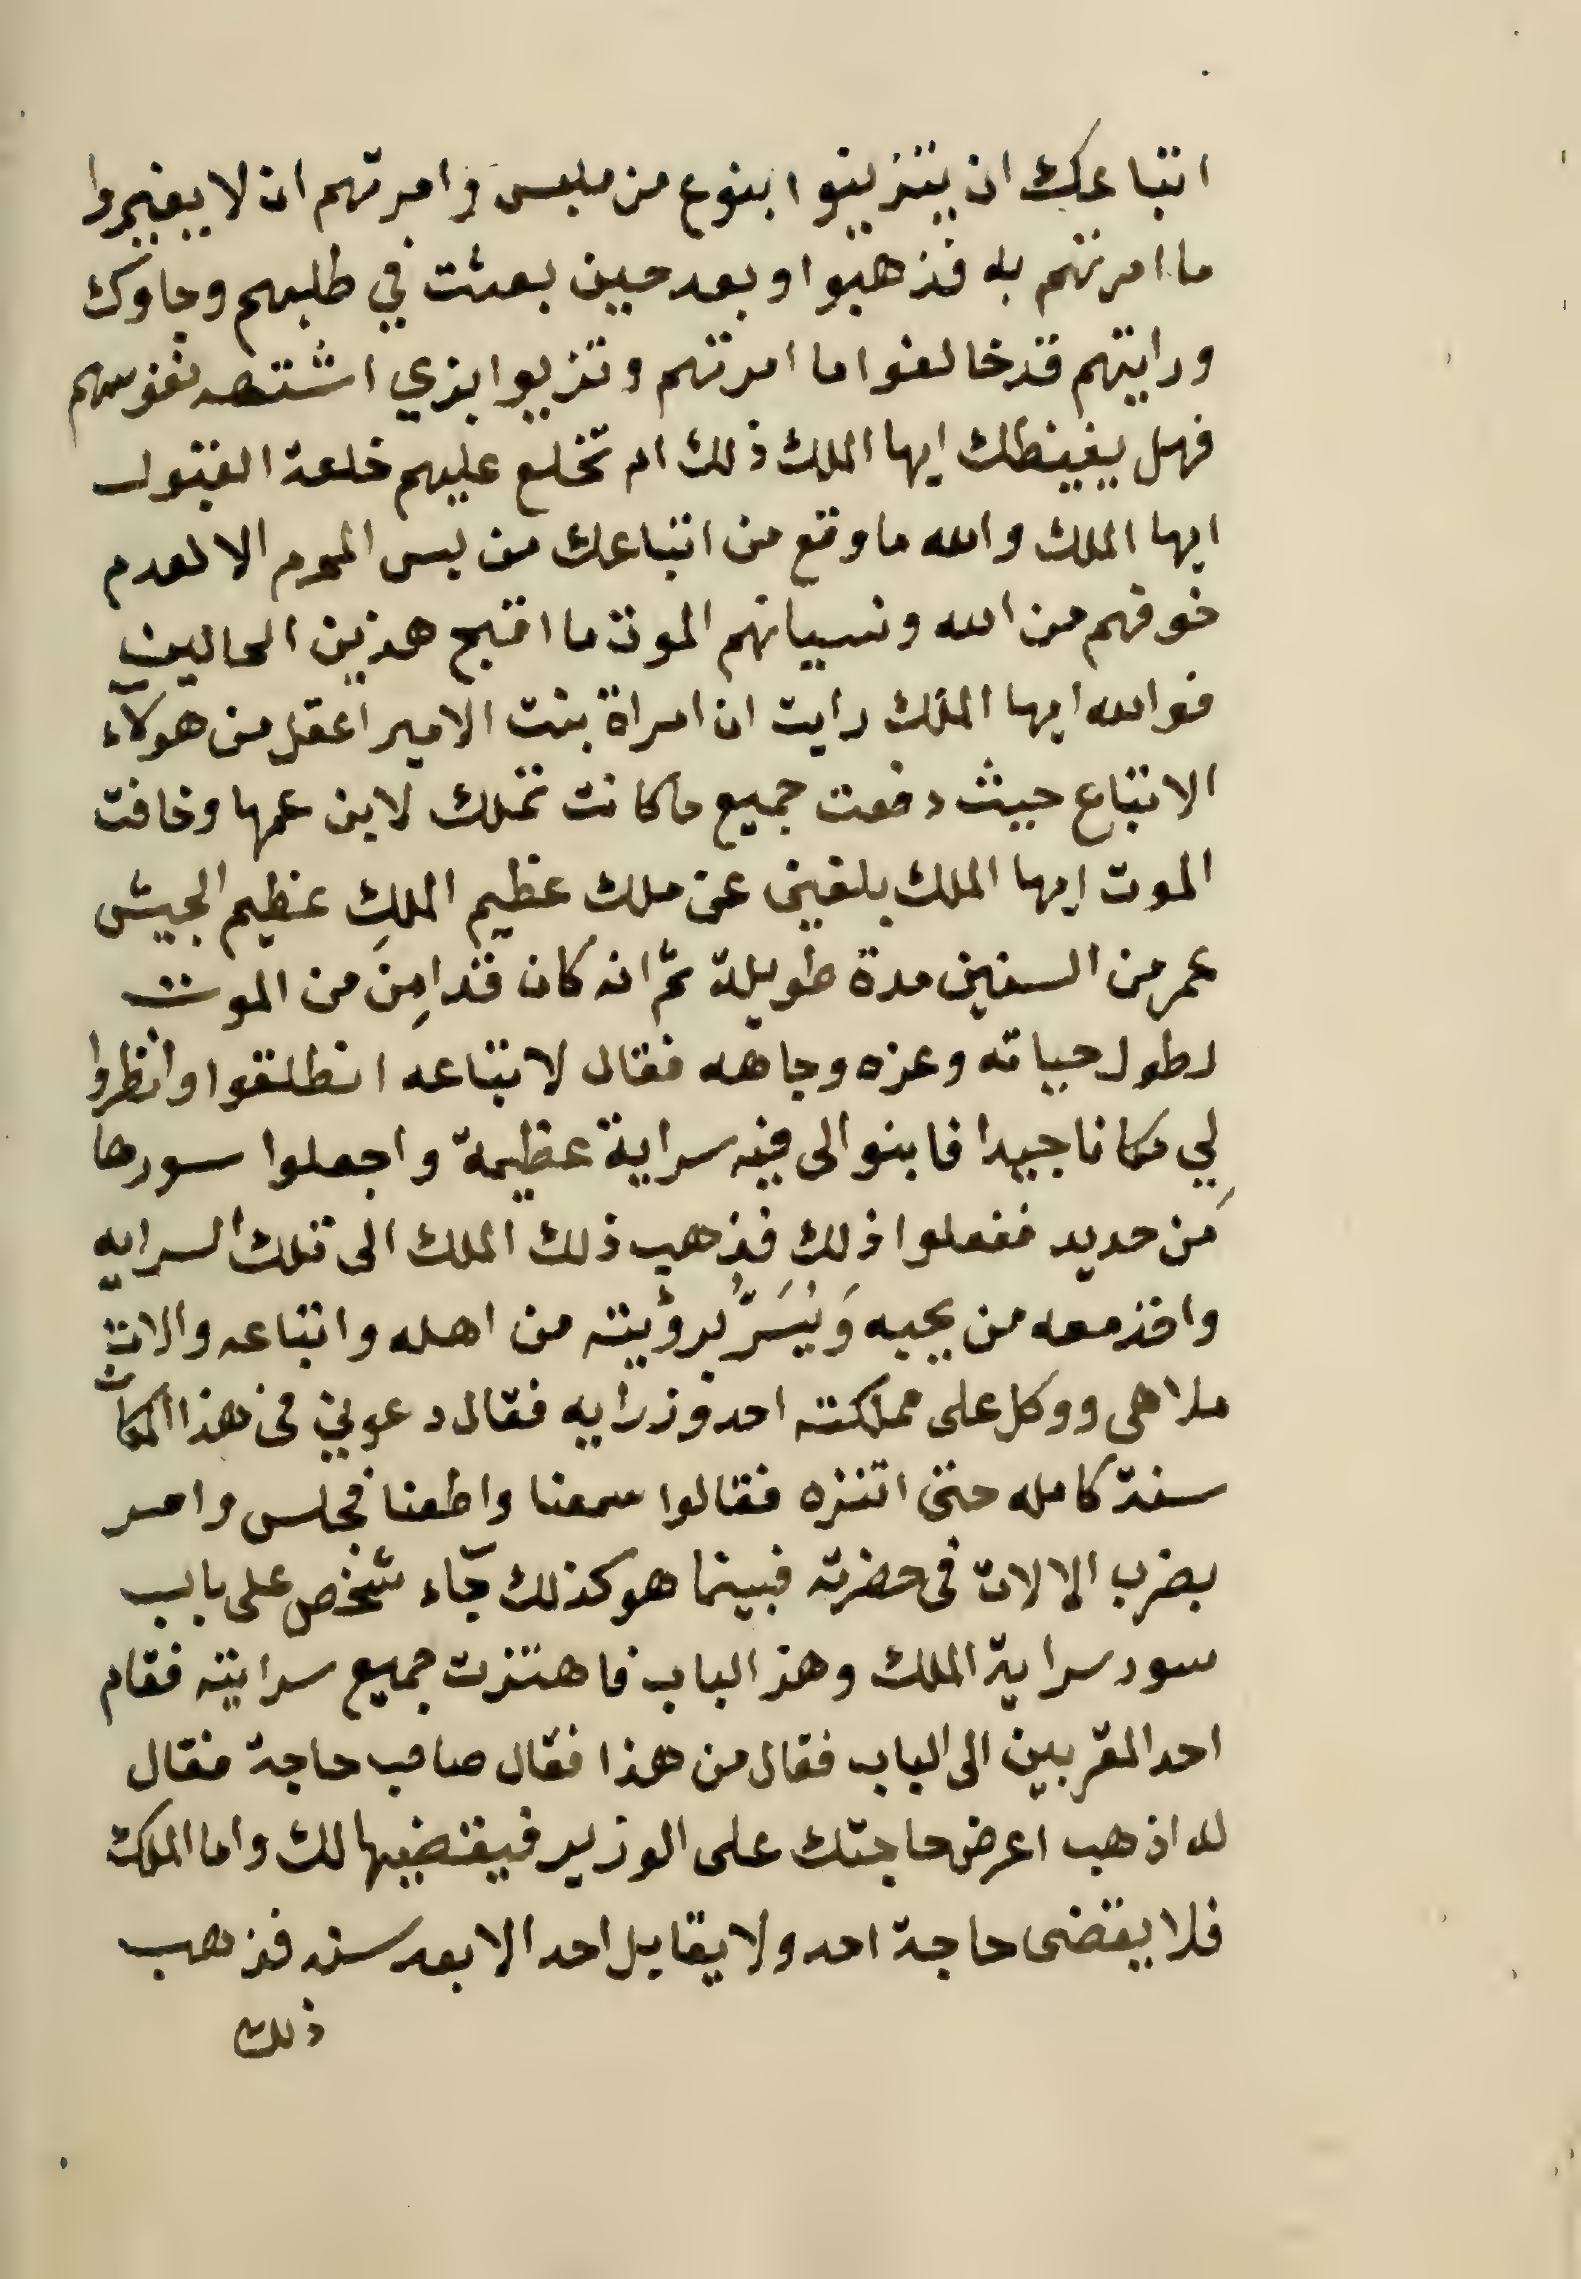 اتباعك ان يتزينوا بنوع من ملبس وامرتهم ان لا يغيروا
ما امرتهم به فذهبوا وبعد حين بعثت في طلبهم وجاوك
ورايتهم قد خالفوا ما امرتهم وتزيوا بزي اشتهه نفوسهم
فهل يغيظك ايها الملك ذلك ام تخلع عليهم خلعة القبول
ايها الملك والله ما وقع من اتباعك من لبس المحرم الا لعدم
خوفهم من الله ونسيانهم الموت ما اقبح هذين الحالين
فوالله ايها الملك رايت ان امراة بنت الامير اعقل من هولآء
الاتباع حيث دفعت جميع ما كانت تملك لابن عمها وخافت
الموت ايها الملك بلغني عن ملك عظيم الملكِ عظيم الجيش
عمر من السنين مدة طويلة ثمّ انه كان قد امِنَ من الموت
لطول حياته وعزه وجاهه فقال لاتباعه انطلقوا وانظروا
لِي مكانا جيدا فابنوا لى فيه سراية عظيمة واجعلوا سورها
من حديد ففعلوا ذلك فذهب ذلك الملك الى تلك السرايه
واخذ معه من يحبه وَيُسَرُّ برؤيته من اهله واتباعه والات
ملاهى ووكل على مملكته احد وزرايه فقال دعوني فى هذا المكان
سنة كامله حتى اتنزه فقالوا سمعنا واطعنا فجلس وامر
بضرب الالات فى حضرته فبينما هو كذلك جآء شخص على باب
سور سراية الملك وهز الباب فاهتزت جميع سرايته فقام
احد المقربين الى الباب فقال من هذا فقال صاحب حاجة فقال
له اذهب اعرض حاجتك على الوزير فيقضيها لك واما الملك
فلا يقضى حاجة احد ولا يقابل احد الا بعد سنه فذهب
ذلك